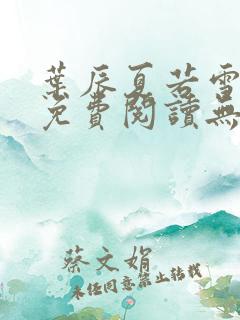 葉辰夏若雪
免費閱讀無
蔡文娟
未經同意禁止轉載